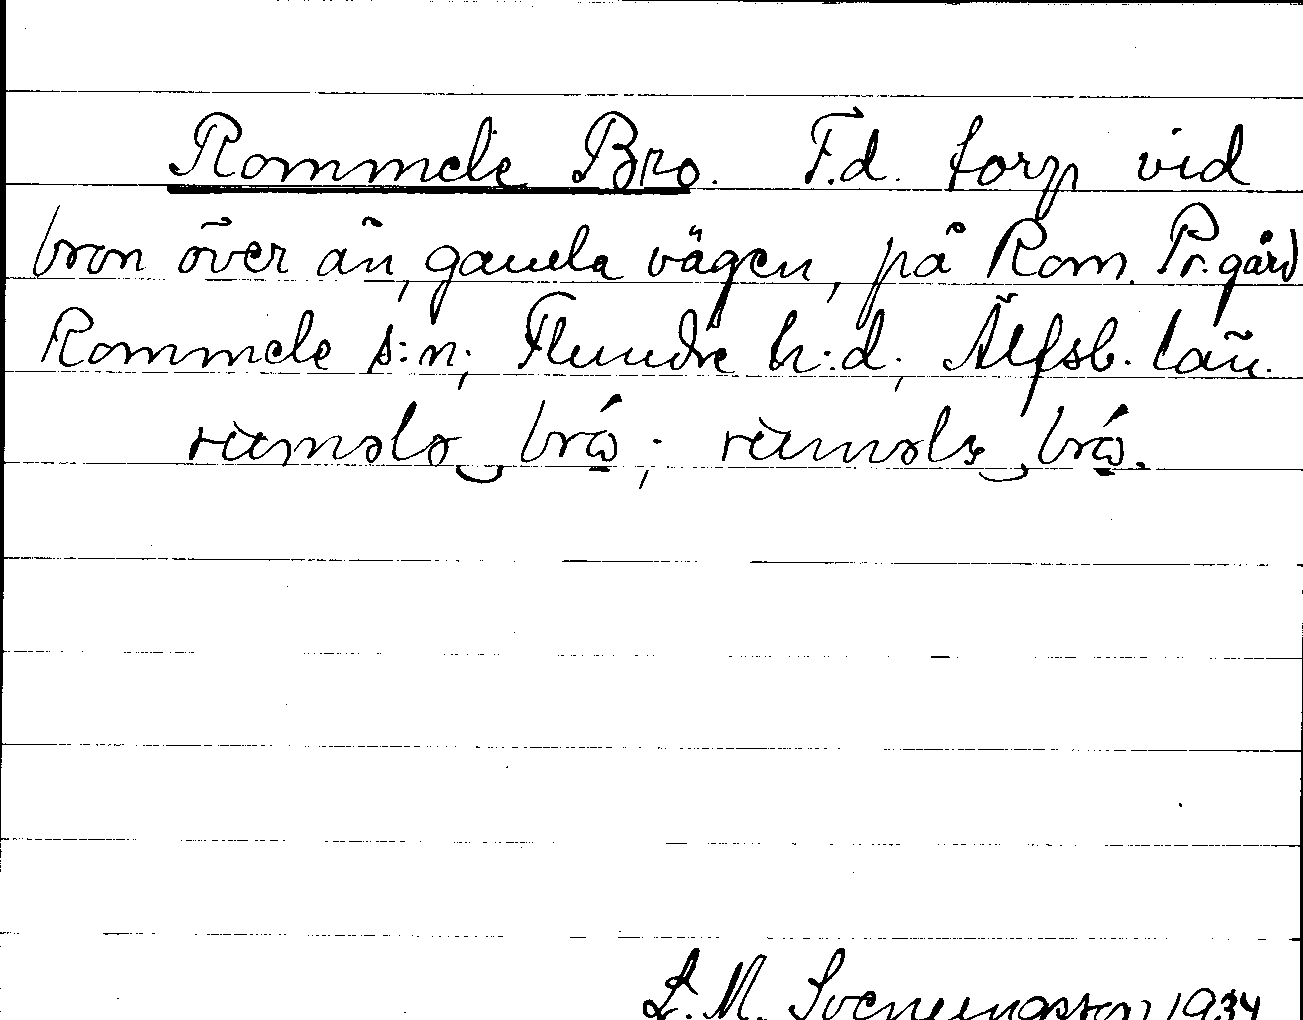 Rommele Bro. F.d. torp vid
bron över ån, gamla vägen, på Rom. Pr.gård
Rommele s:n; Flundre h:d; Älfsb. län.
L. M. Svenungsson 1934